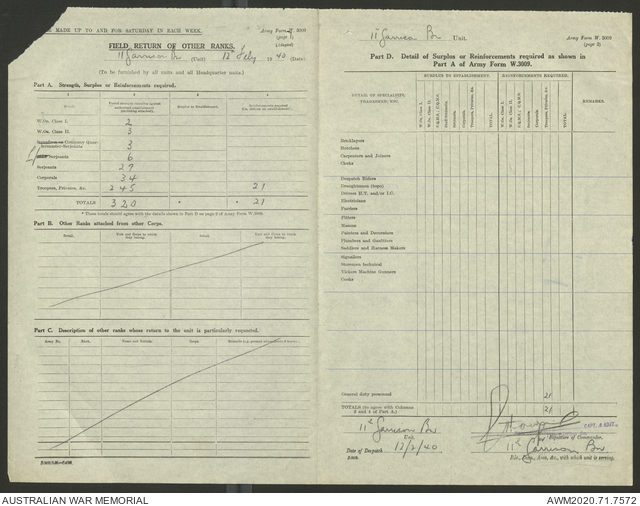 MADE UP TO AND FOR SATURDAY IN EACH WEEK.
Army Form W. 3009
(page 1)
(Adapted)
FIELD RETURN OF OTHER RANKS.
11 Garrison Bn (Unit) 12th Feby 1940 (Date)
(To be furnished by all units and all Headquarter units.)
Part A. Strength, Surplus or Reinforcements required.
1 2 3 4
Detail.
Surplus to Establishment.
W.Os. Class I. 2
W.Os. Class II. 3
Squadron or Company Quartermaster-Serjeants 3
Serjeants 6
Serjeants 27
Corporals 34
Troopers, Privates, &c. 245 21
TOTALS 320 * * 21
* These totals should agree with the details shown in Part D on page 2 of Army Form W.3009.
Part B. Other Ranks attached from other Corps.
Detail. Unit and Corps to which they belong. Detail. Unit and Corps to which they belong.
Part C. Description of other ranks whose return to the unit is particularly requested.
Army No. Rank. Name and Initials. Corps.
11 Garrison Bn Unit.
Army Form W. 3009
(page 2)
Part D. Detail of Surplus or Reinforcements required as shown in
Part A of Army Form W.3009.
DETAIL OF SPECIALISTS, TRADESMEN, ETC.
SURPLUS TO ESTABLISHMENT. REINFORCEMENTS REQUIRED.
W.Os. Class I. W.Os. Class II. Serjeants. Corporals. Troopers, Privates, &c. TOTAL.
W.Os. Class I. W.Os. Class II. Serjeants. Corporals. Troopers, Privates, &c. TOTAL.
REMARKS.
Bricklayers
Butchers
Carpenters and Joiners
Clerks
Despatch Riders
Draughtsmen (topo)
Drivers H.T. and/or I.C.
Electricians
Farriers
Fitters
Masons
Painters and Decorators
Plumbers and Gasfitters
Saddlers and Harness Makers
Signallers
Storemen technical
Vickers Machine Gunners
Cooks
General duty personnel 21
TOTALS (to agree with Columns
3 and 4 of Part A.) 21
11th Garrison Bn
Unit.
CAPT. & ADJT.
Signature of Commander.
Date of Despatch 12/2/40
11th Garrison Bn.
Bde., Divn., Area, &c., with which unit is serving.
AUSTRALIAN WAR MEMORIAL
AWM2020.71.7572